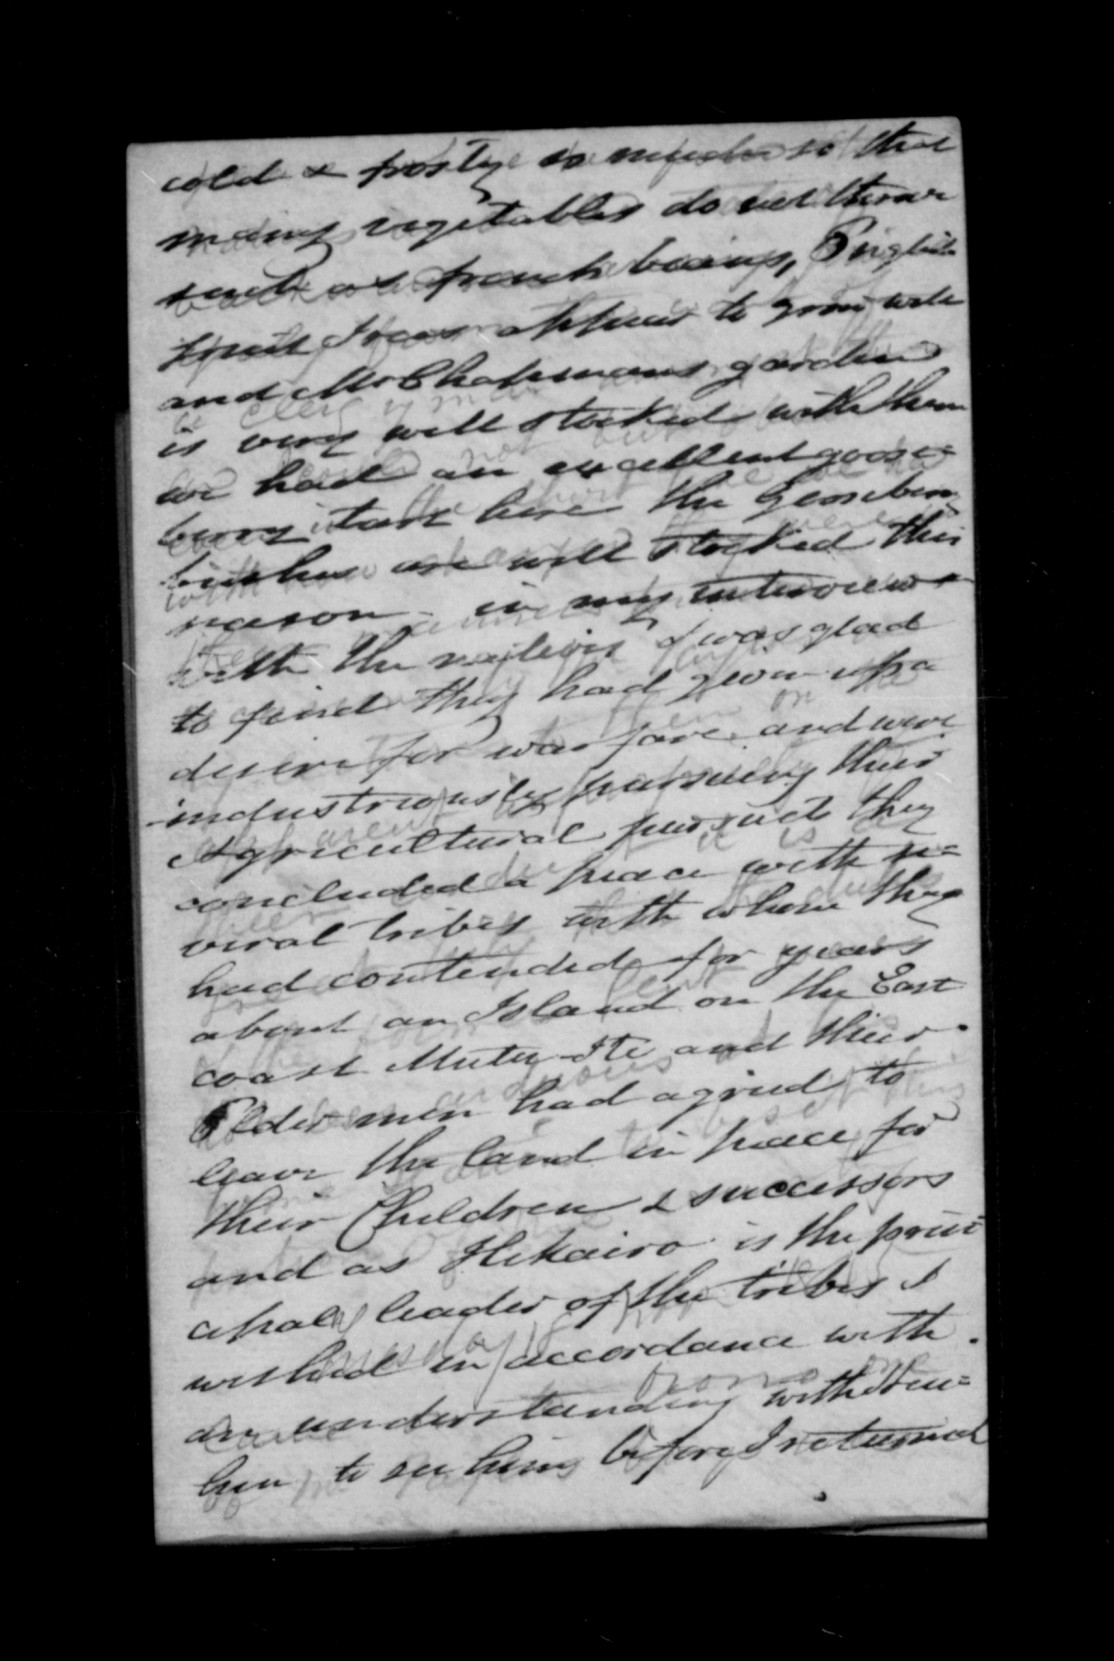 cold & frosty so much so that
many vegetables do not thrive
such as french beans, English
fruit trees appear to grow well
and Mr Chapmans garden
is very well stocked with them
we had an excellent goose=
berry tart here the Gooseberry
bushes are well stocked this
season - in my interviews
with the natives I was glad
to find they had given up a
desire for warfare and were
industriously pursuing their
Agricultural pursuits they
concluded a peace with se=
veral tribes with whom they
had contended for years
about an Island on the East
coast Mutu Iti and their
Elder men had agreed to
leave the land in peace for
their Children & successors
and as Hikairo is the prin
cipal leader of the tribes I
wished in accordance with
an understanding with
to see him before I returned